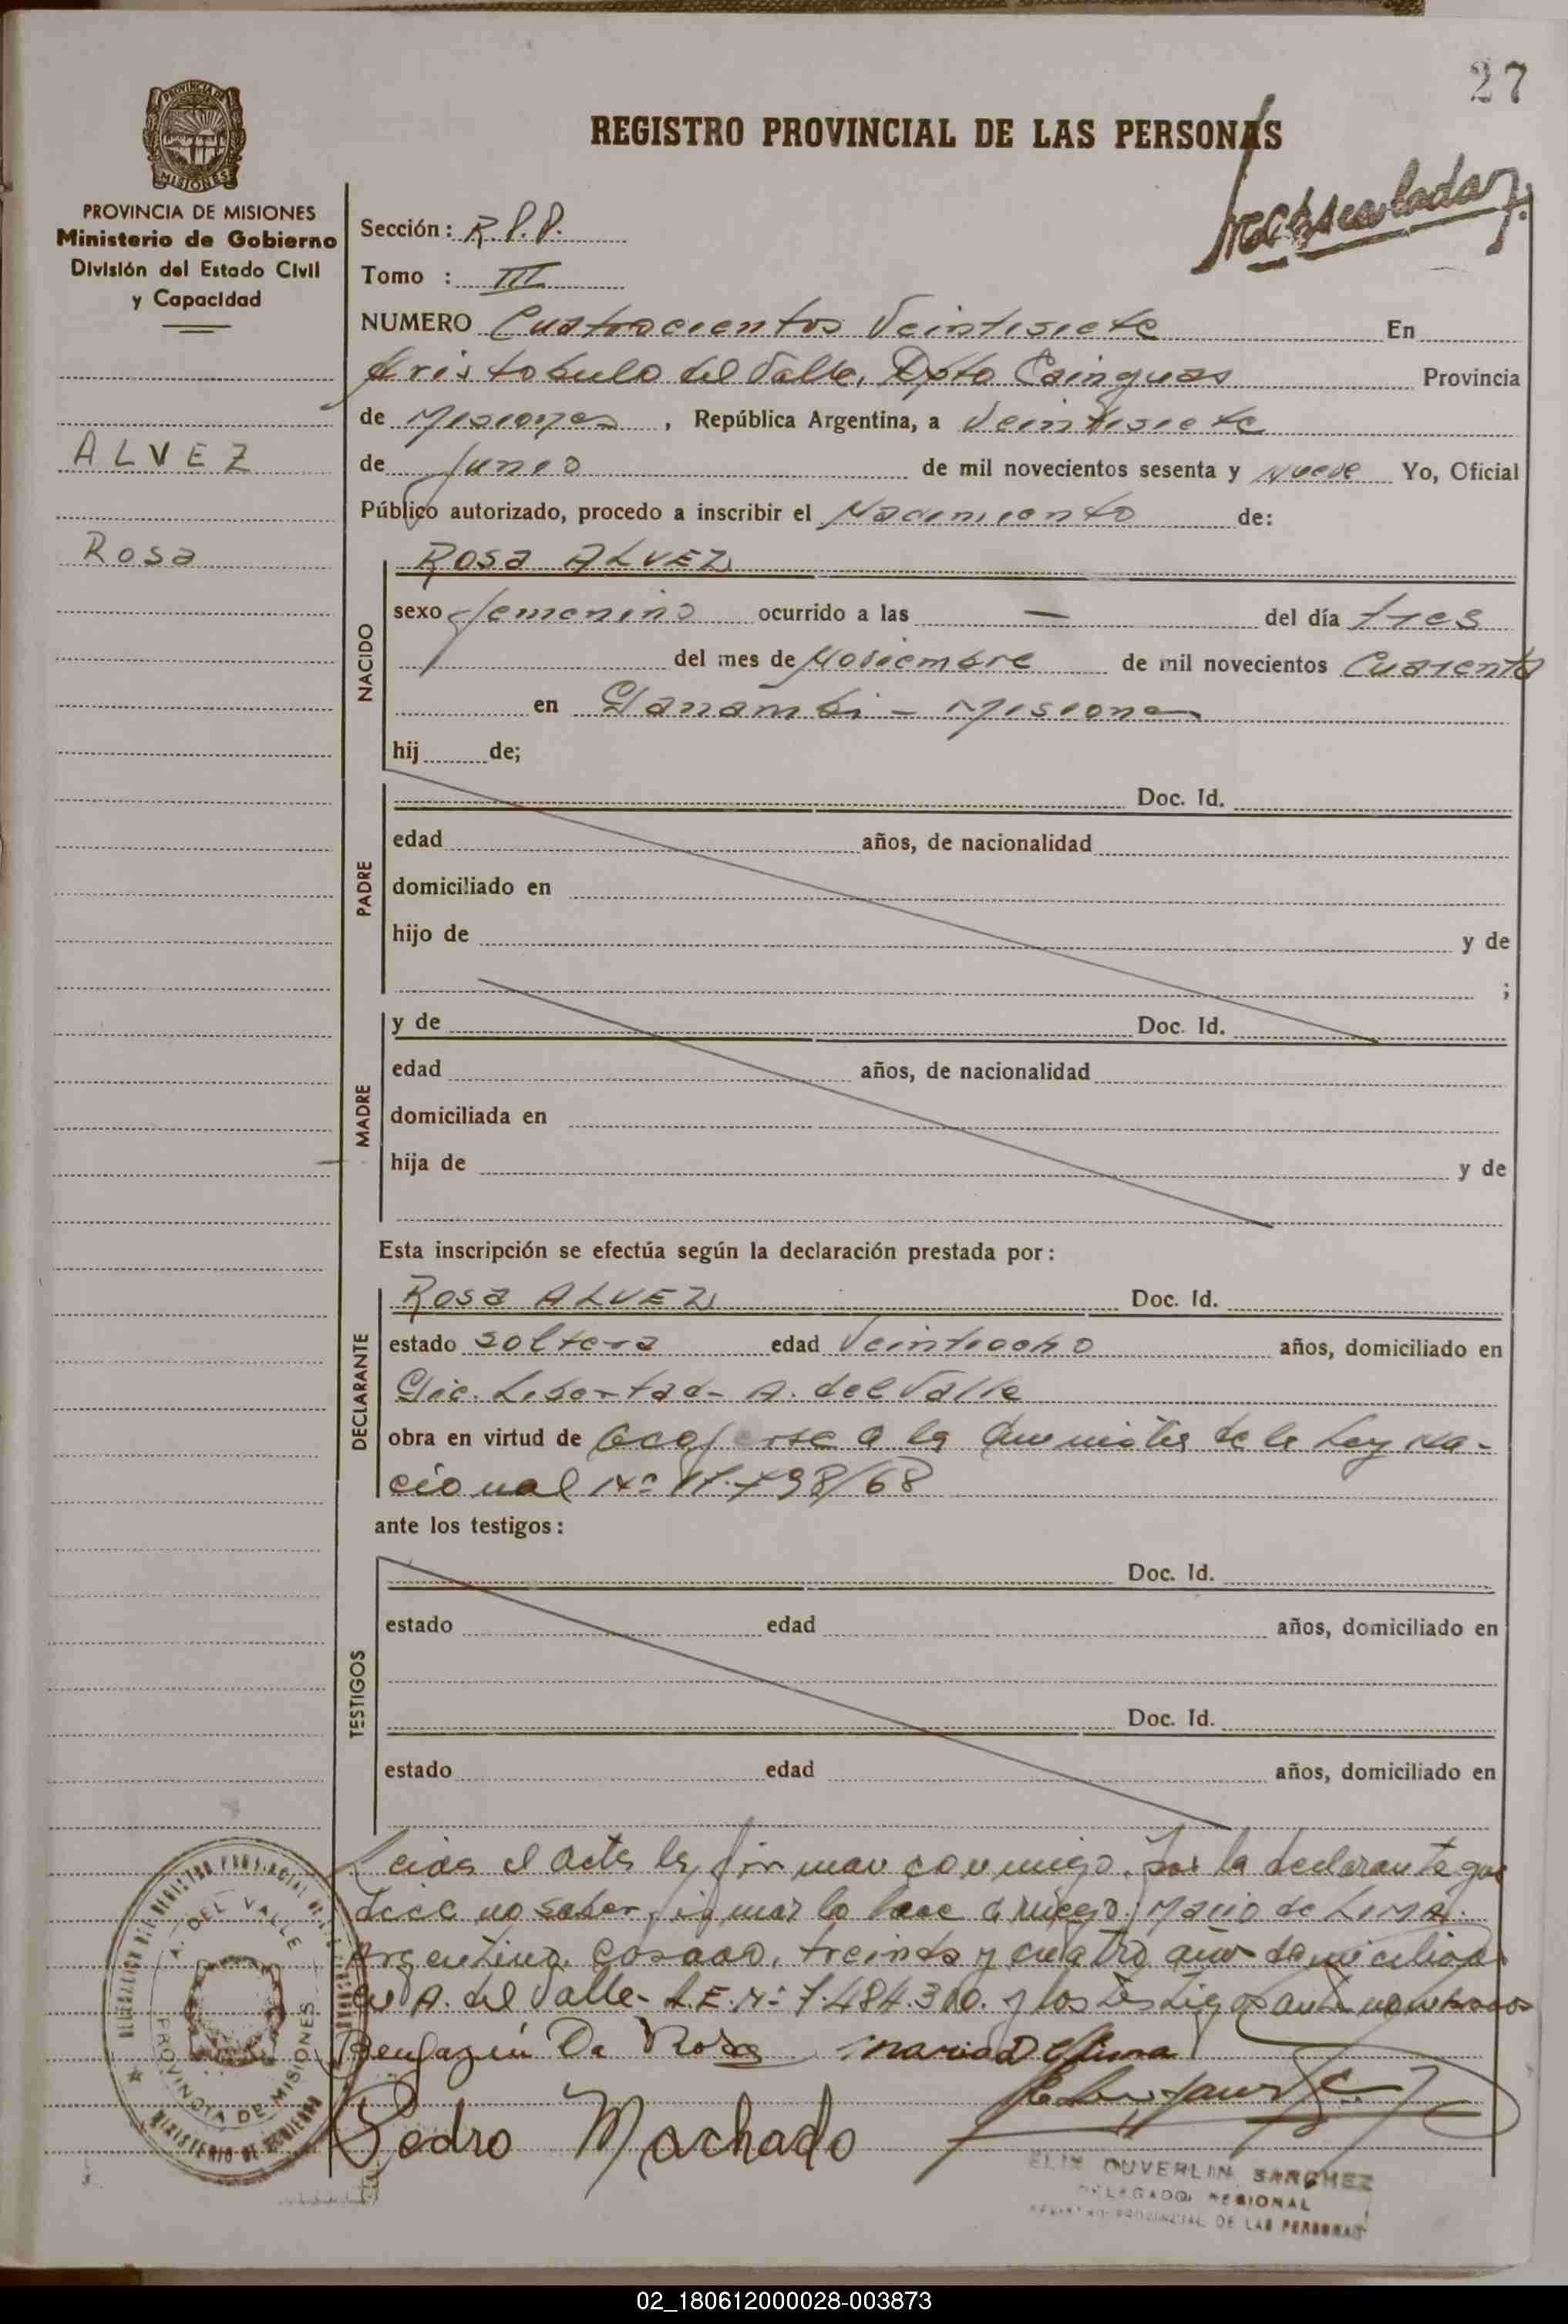 27
REGISTRO PROVINCIAL DE LAS PERSONAS
PROVINCIA DE MISIONES
Ministerio de Gobierno
División del Estado Civil
y Capacidad
ALVEZ
Rosa
Sección: R.P.P.
Tomo : III
NUMERO Cuatrocientos Veintisiete En
Aristobulo del Valle, Dpto Cainguas Provincia
de Misiones, República Argentina, a Veintisiete
de Junio de mil novecientos sesenta y Nueve Yo, Oficial
Público autorizado, procedo a inscribir el Nacimiento de:
NACIDO
Rosa ALVEZ
sexo femenino ocurrido a las — del día tres
del mes de Noviembre de mil novecientos Cuarenta
en Panambi - Misiones
hij de;
PADRE
Doc. Id.
edad años, de nacionalidad
domiciliado en
hijo de y de
;
MADRE
y de Doc. Id.
edad años, de nacionalidad
domiciliada en
hija de y de
Esta inscripción se efectúa según la declaración prestada por:
DECLARANTE
Rosa ALVEZ Doc. Id.
estado soltera edad Veintiocho años, domiciliado en
Pic. Libertad - A. del Valle
obra en virtud de acojerse a la de la Ley Na-
cional Nº 17.798/68
ante los testigos:
TESTIGOS
Doc. Id.
estado edad años, domiciliado en
Doc. Id.
estado edad años, domiciliado en
Leida el acta la firman conmigo. Por la declarante que
dice no saber firmar lo hace a ruego Mario de LIMA.
Argentino. casado, treinta y cuatro años domiciliado
en A. del Valle - L.E. Nº 7.484.310. y los testigos
Benjamín Da Rosa Mario D Lima
Pedro Machado
DUVERLIN SANCHEZ
DELEGADO REGIONAL
REGISTRO PROVINCIAL DE LAS PERSONAS
A. DEL VALLE
PROVINCIA DE MISIONES
MINISTERIO DE GOBIERNO
02_180612000028-003873